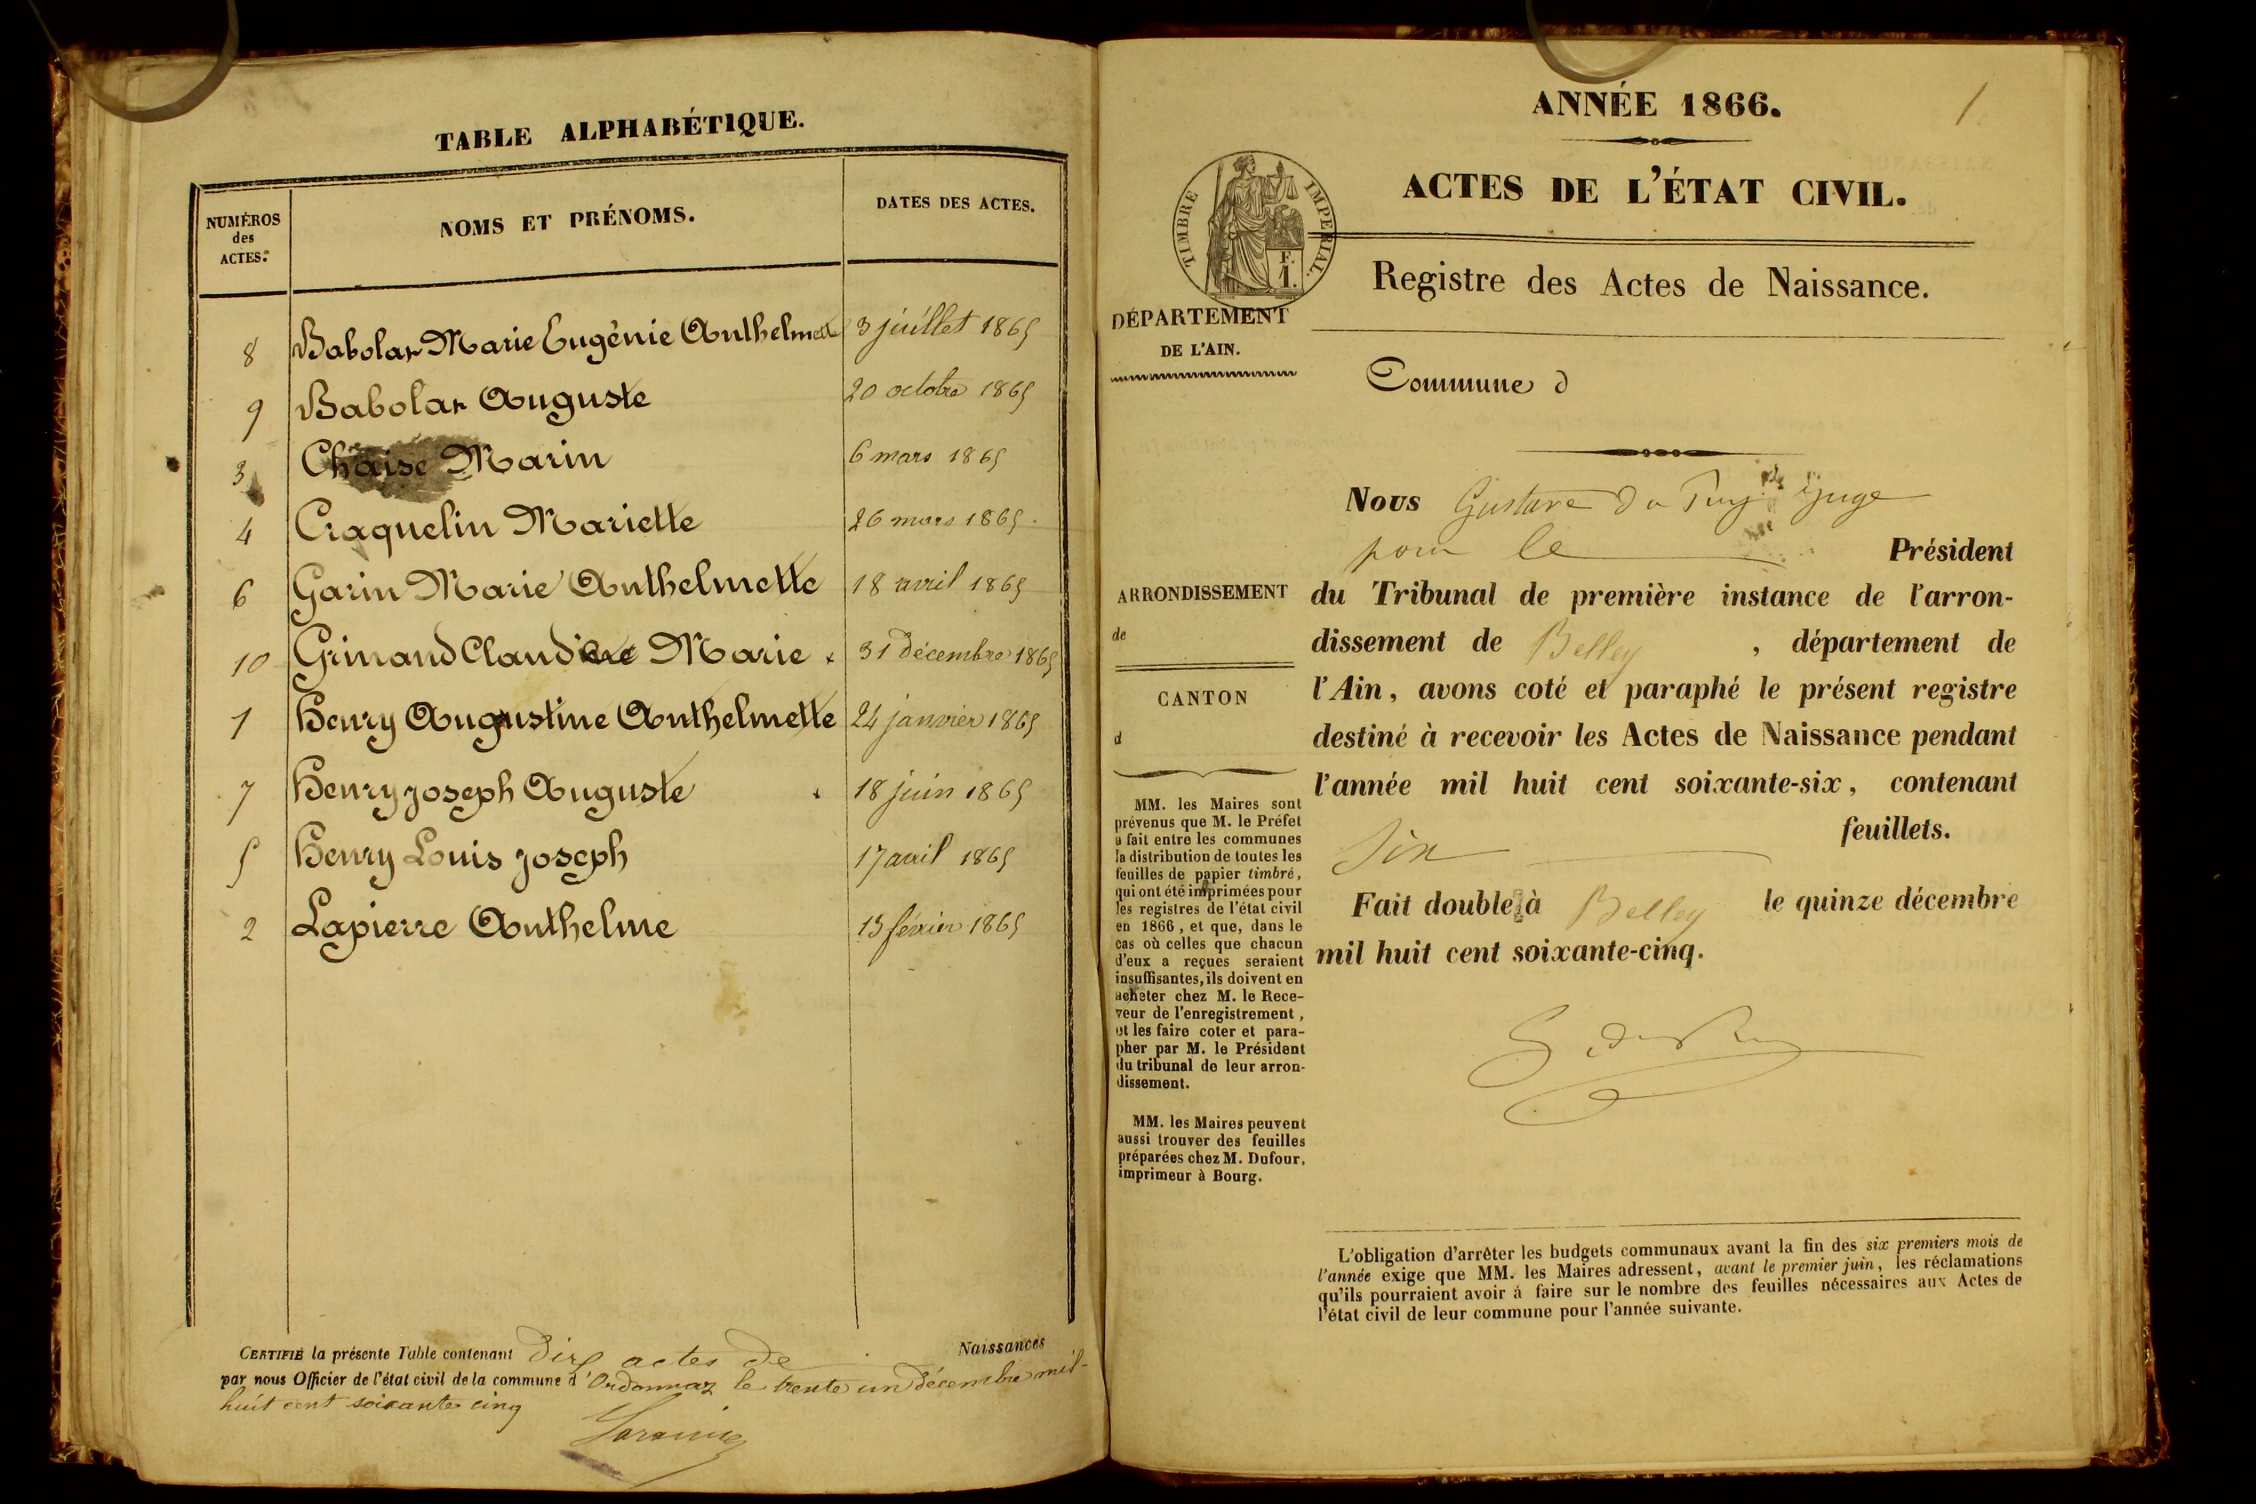 TABLE ALPHABÉTIQUE.
NUMÉROS des ACTES.
NOMS ET PRÉNOMS.
DATES DES ACTES.
8 Babolat Marie Eugènie Anthelmette 3 juillet 1865
9 Babolat Auguste 20 octobre 1865
3 Chaise Marin 6 mars 1865
4 Craquelin Mariette 26 mars 1865
6 Garin Marie Anthelmette 18 avril 1865
10 Grinand Claudine Marie 31 décembre 1865
1 Henry Augustine Anthelmette 24 janvier 1865
7 Henry joseph Auguste 18 juin 1865
5 Henry Louis joseph 17 avril 1865
2 Lapierre Anthelme 13 février 1865
CERTIFIÉ la présente Table contenant dix actes de Naissances
par nous Officier de l'état civil de la commune d'Ordonnaz le trente un décembre mil
huit cent soixante cinq
1
ANNÉE 1866.
ACTES DE L'ÉTAT CIVIL.
TIMBRE IMPERIAL.
F.
1.
Registre des Actes de Naissance.
DÉPARTEMENT
DE L'AIN.
Commune d
Nous Gustave Du Puy Juge
pour le Président
du Tribunal de première instance de l'arron-
dissement de Belley, département de
l'Ain, avons coté et paraphé le présent registre
destiné à recevoir les Actes de Naissance pendant
l'année mil huit cent soixante-six, contenant
Six feuillets.
Fait double à Belley le quinze décembre
mil huit cent soixante-cinq.
ARRONDISSEMENT
de
CANTON
d
MM. les Maires sont
prévenus que M. le Préfet
a fait entre les communes
la distribution de toutes les
feuilles de papier timbré,
qui ont été imprimées pour
les registres de l'état civil
en 1866, et que, dans le
cas où celles que chacun
d'eux a reçues seraient
insuffisantes, ils doivent en
acheter chez M. le Rece-
veur de l'enregistrement,
et les faire coter et para-
pher par M. le Président
du tribunal de leur arron-
dissement.
MM. les Maires peuvent
aussi trouver des feuilles
préparées chez M. Dufour,
imprimeur à Bourg.
L'obligation d'arrêter les budgets communaux avant la fin des six premiers mois de
l'année exige que MM. les Maires adressent, avant le premier juin, les réclamations
qu'ils pourraient avoir à faire sur le nombre des feuilles nécessaires aux Actes de
l'état civil de leur commune pour l'année suivante.